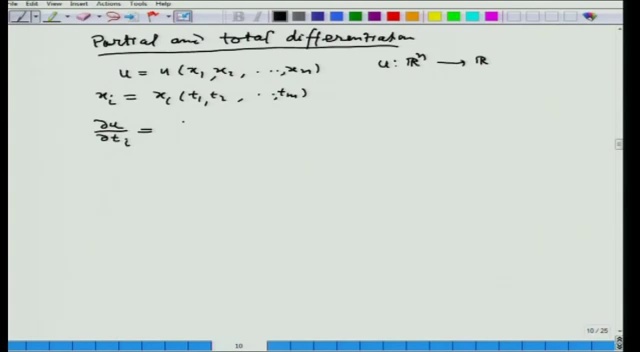 File Edit View Insert Actions Tools Help
Partial and total differentiation
u = u (x₁, x₂, ..., xₙ) u: ℝⁿ → ℝ
xᵢ = xᵢ (t₁, t₂, ..., tₘ)
∂u/∂tᵢ =
10 / 25
10